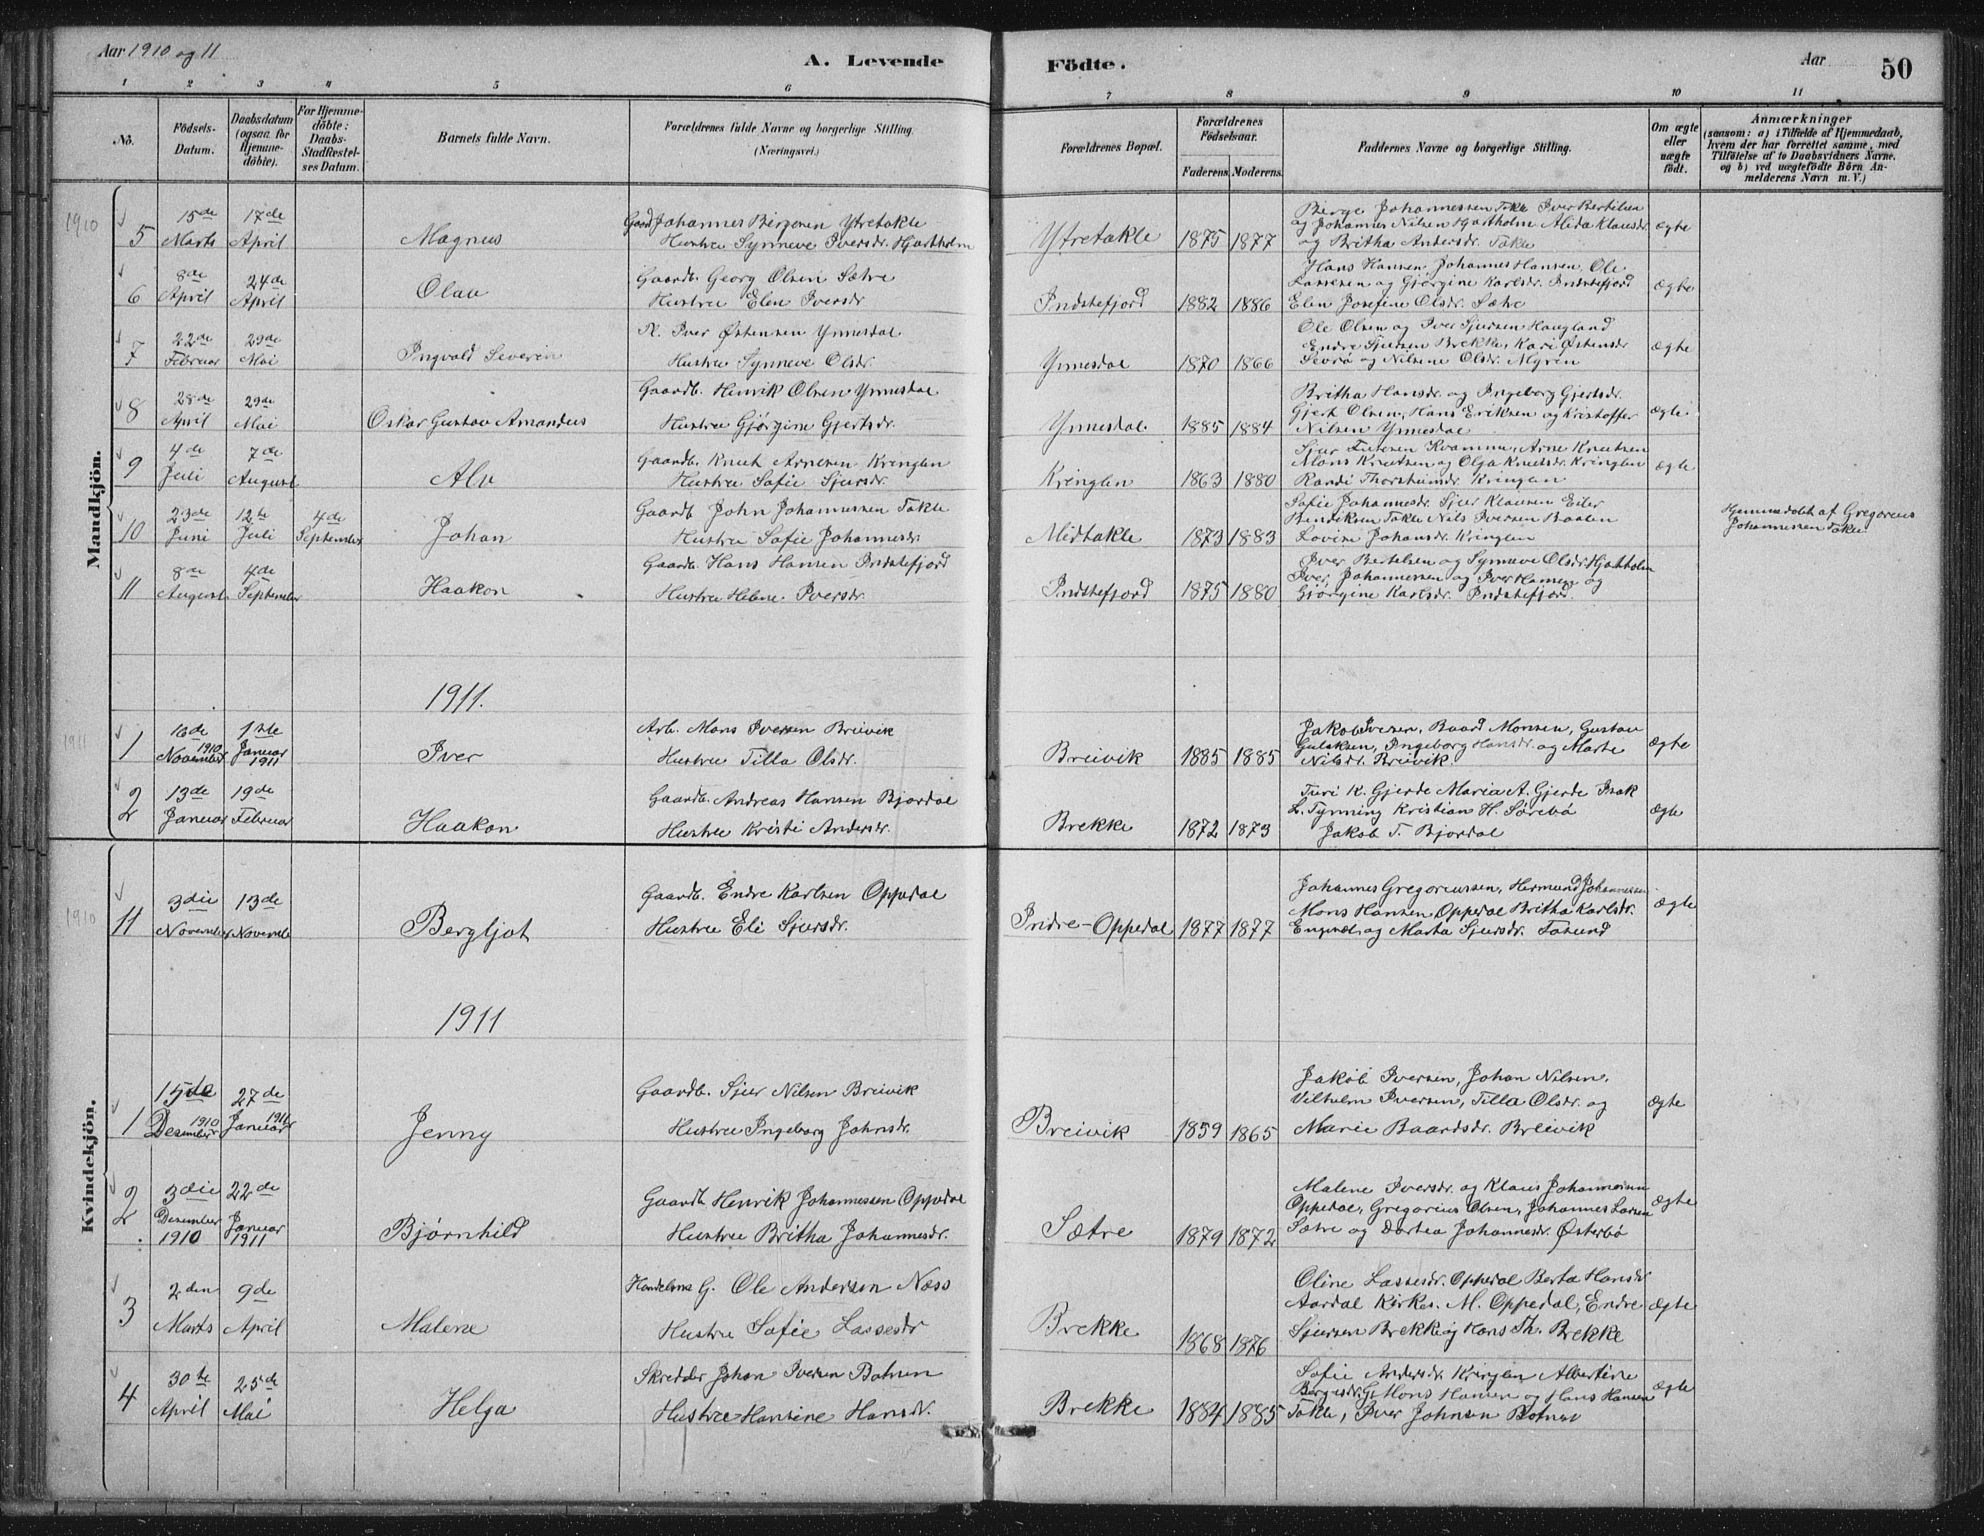 Aar 1910 og 11
A. Levende Födte.
Aar 50
1 2 3 4 5 6 7 8 9 10 11
No.
Födsels-Datum.
Daabsdatum (ogsaa for Hjemme-döbte).
For Hjemme-döbte: Daabs-Stadfæstelses Datum.
Barnets fulde Navn.
Forældrenes fulde Navne og borgerlige Stilling. (Næringsvei.)
Forældrenes Bopæl.
Forældrenes Födselsaar. Faderens. Moderens.
Faddernes Navne og borgerlige Stilling.
Om ægte eller uægte födt.
Anmærkninger (saasom: a) i Tilfælde af Hjemmedaab, hvem der har forrettet samme, med Tilföielse af to Daabsvidners Navne, og b) ved uægtefödte Börn Anmelderens Navn m. V.)
Mandkjön.
1910
5 15de Marts 17de April Magnus
Gaardb Johannes Bergesen Ytretakle
Hustru Synneve Iversdr. Hjartholm
Ytretakle 1875 1877
Berge Johannessen Takle Iver Bertilsen
og Johannes Nilsen Hjartholm Alida Klausdr.
og Britha Andersdr. Takle
ægte
6 8de April 24de April Olav
Gaardb. Georg Olsen Sætre
Hustru Elen Iversdr
Indstefjord 1882 1886
Hans Hansen, Johannes Hansen, Ole
Lassesen og Gjørgine Karlsdr. Indstefjord
Elen Josefine Olsdr. Sætre
ægte
7 22de Februar 29de Mai Ingvald Severin
K. Iver Østensen Ynnesdal
Hustru Synneve Olsdr.
Ynnesdal 1870 1866
Ole Olsen og Iver Sjursen Haugland
Endre Sjursen Brekke, Kari Østensdr
Sevrø og Nilsine Olsdr. Myren
ægte
8 28de April 29de Mai Oskar Gustav Amandus
Gaardb. Henrik Olsen Ynnesdal
Hustru Gjørgine Gjertsdr.
Ynnesdal 1885 1884
Britha Hansdr. og Ingeborg Gjertsdr.
Gjert Olsen, Hans Eriksen og Kristoffer
Nilsen Ynnesdal
ægte
9 4de Juli 7de August Alv
Gaardb. Knut Arnesen Kringlen
Hustru Sofie Sjursdr.
Kringlen 1863 1880
Sjur Kvamme, Arne Knutsen
Mons Knutsen og Olga Knutsdr. Kringlen
Randi Kringlen
ægte
10 23de Juni 12te Juli 4de September Johan
Gaardb John Johannessen Takle
Hustru Sofie Johannesdr.
Midtakle 1873 1883
Sofie Johannesdr. Sjur Klausen Eiler
Hendriksen Takle Nils Iversen
Lovise Johansdr. Kringlen
Hjemmedøbt af Gregorius
Johannessen Takle
11 8de August 4de September Haakon
Gaardb. Hans Hansen Indstefjord
Hustru Helene Iversdr.
Indstefjord 1875 1880
Iver Bertelsen og Synneve Olsdr. Hjartholm
Iver Johannessen og Iver Hansen og
Gjørgine Karlsdr. Indstefjord.
1911.
1911
1 16de November 1910 1ste Januar 1911 Iver
Arb. Mons Iversen Breivik
Hustru Tilla Olsdr.
Breivik 1885 1885
Jakob Iversen, Baard Monsen, Gustav
Gulaksen, Ingeborg Hansdr. og Marte
Nilsdr. Breivik
ægte
2 13de Januar 19de Februar Haakon
Gaardb. Andreas Hansen Bjordal
Hustru Kristi Andersdr.
Brekke 1872 1873
Turi K. Gjerde Maria A. Gjerde Isak
L. Tynning Kristian H. Sørebø
Jakob T. Bjordal
ægte
Kvindekjön.
1910
11 3die November 13de November Bergljot
Gaardb. Endre Karlsen Oppedal
Hustru Eli Sjursdr.
Indre-Oppedal 1877 1877
Johannes Gregoriussen, Hermund Johannessen
Mons Hansen Oppedal Britha Karlsdr.
og Marta Sjursdr.
ægte
1911
1 15de Desember 1910 27de Januar 1911 Jenny
Gaardb. Sjur Nilsen Breivik
Hustru Ingeborg Johnsdr.
Breivik 1859 1865
Jakob Iversen, Johan Nilsen,
Vilhelm Iversen, Tilla Olsdr. og
Marie Baardsdr. Breivik
ægte
2 3die Desember 1910 22de Januar 1911 Bjørnhild
Gaardb Henrik Johannessen Oppedal
Hustru Britha Johannesdr.
Sætre 1879 1872
Malene Iversdr. og Klaus Johannessen
Oppedal, Gregorius Olsen, Johannes Larsen
Sætre og Dortea Johannesdr. Østerbø
ægte
3 2den Marts 9de April Malene
Handelsm G. Ole Andersen Næss
Hustru Sofie Lassesdr
Brekke 1868 1876
Oline Lassesdr. Oppedal Berta Hansdr
Aardal Kirkes. M. Oppedal, Endre
Sjursen Brekke og Hans Th. Brekke
ægte
4 30te April 25de Mai Helga
Skredder Johan Iversen Botnen
Hustru Hansine Hansdr.
Brekke 1884 1885
Sofie Andersdr Kringlen Albertine
Bergesdr. Mons Hansen og Hans Hansen
Takle, Iver Johnsen Botnen
ægte